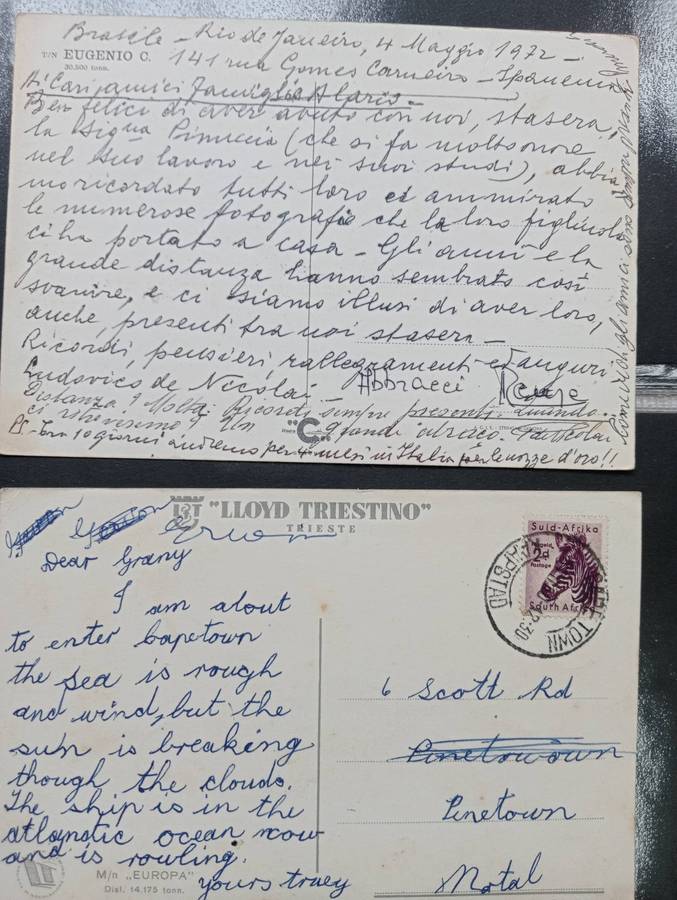 Brasile - Rio de Janeiro, 4 Maggio 1972 -
T/N EUGENIO C.
30.500 tonn.
141 rua Gomes Carneiro - Ipanema
Ai Cari amici famiglia Alaris -
Ben felici di aver avuto con noi, stasera,
la Signa Pinuccia (che si fa molto onore
nel suo lavoro e nei suoi studi), abbia
mo ricordato tutti loro ed ammirato
le numerose fotografie che la loro figliuola
ci ha portato a casa - Gli anni e la
grande distanza hanno sembrato così
svanire, e ci siamo illusi di aver loro,
anche, presenti tra noi stasera -
Ricordi, pensieri, rallegramenti ed auguri
Ludovico de Necolai - Abbracci
Distanza? Molti Ricordi sempre presenti. Quando
ci rivedremo? Un grande abbraccio.
"C"
PS - Tra 10 giorni andremo per 4 mesi in Italia per le nozze d'oro!!
"LLOYD TRIESTINO"
TRIESTE
Dear Grany
I am about
to enter Capetown
the sea is rough
and wind, but the
sun is breaking
though the clouds.
The ship is in the
atlantic ocean now
and is rowling.
yours truey
M/n „EUROPA"
Disl. 14.175 tonn.
Suid-Afrika
2d
Postage
South Africa
KAAPSTAD
TOWN
12.30
6 Scott Rd
Pinetowown
Pinetown
Natal